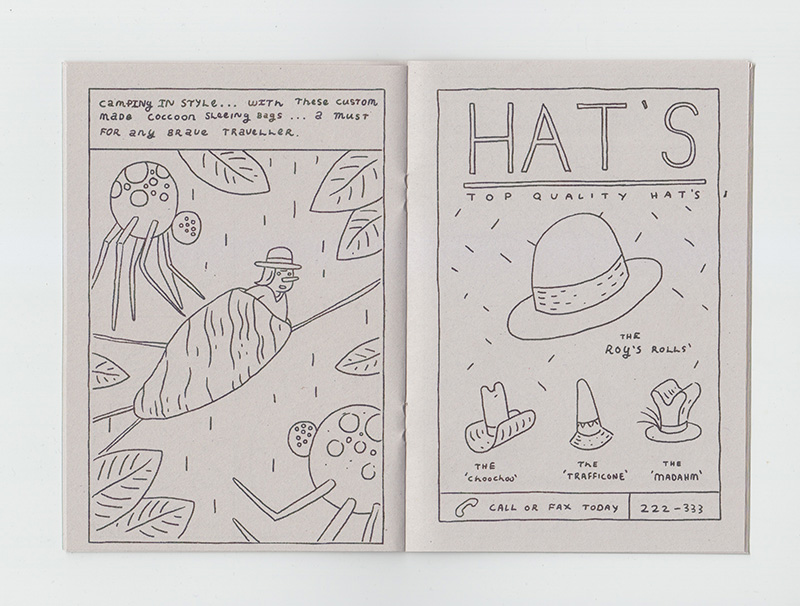 camPINg IN STYLE... WITH THese CUSTOM
maDe COCCOON SLEEINg Bags ... a MUST
FOR any BRave TRaveLLER.
HAT'S
TOP QUALITY HAT'S
THE
ROY'S ROLLS'
THE
'choochoo'
The
'TRAFFICONE'
THE
'MADAHM'
CALL OR FAX TODAY 222-333